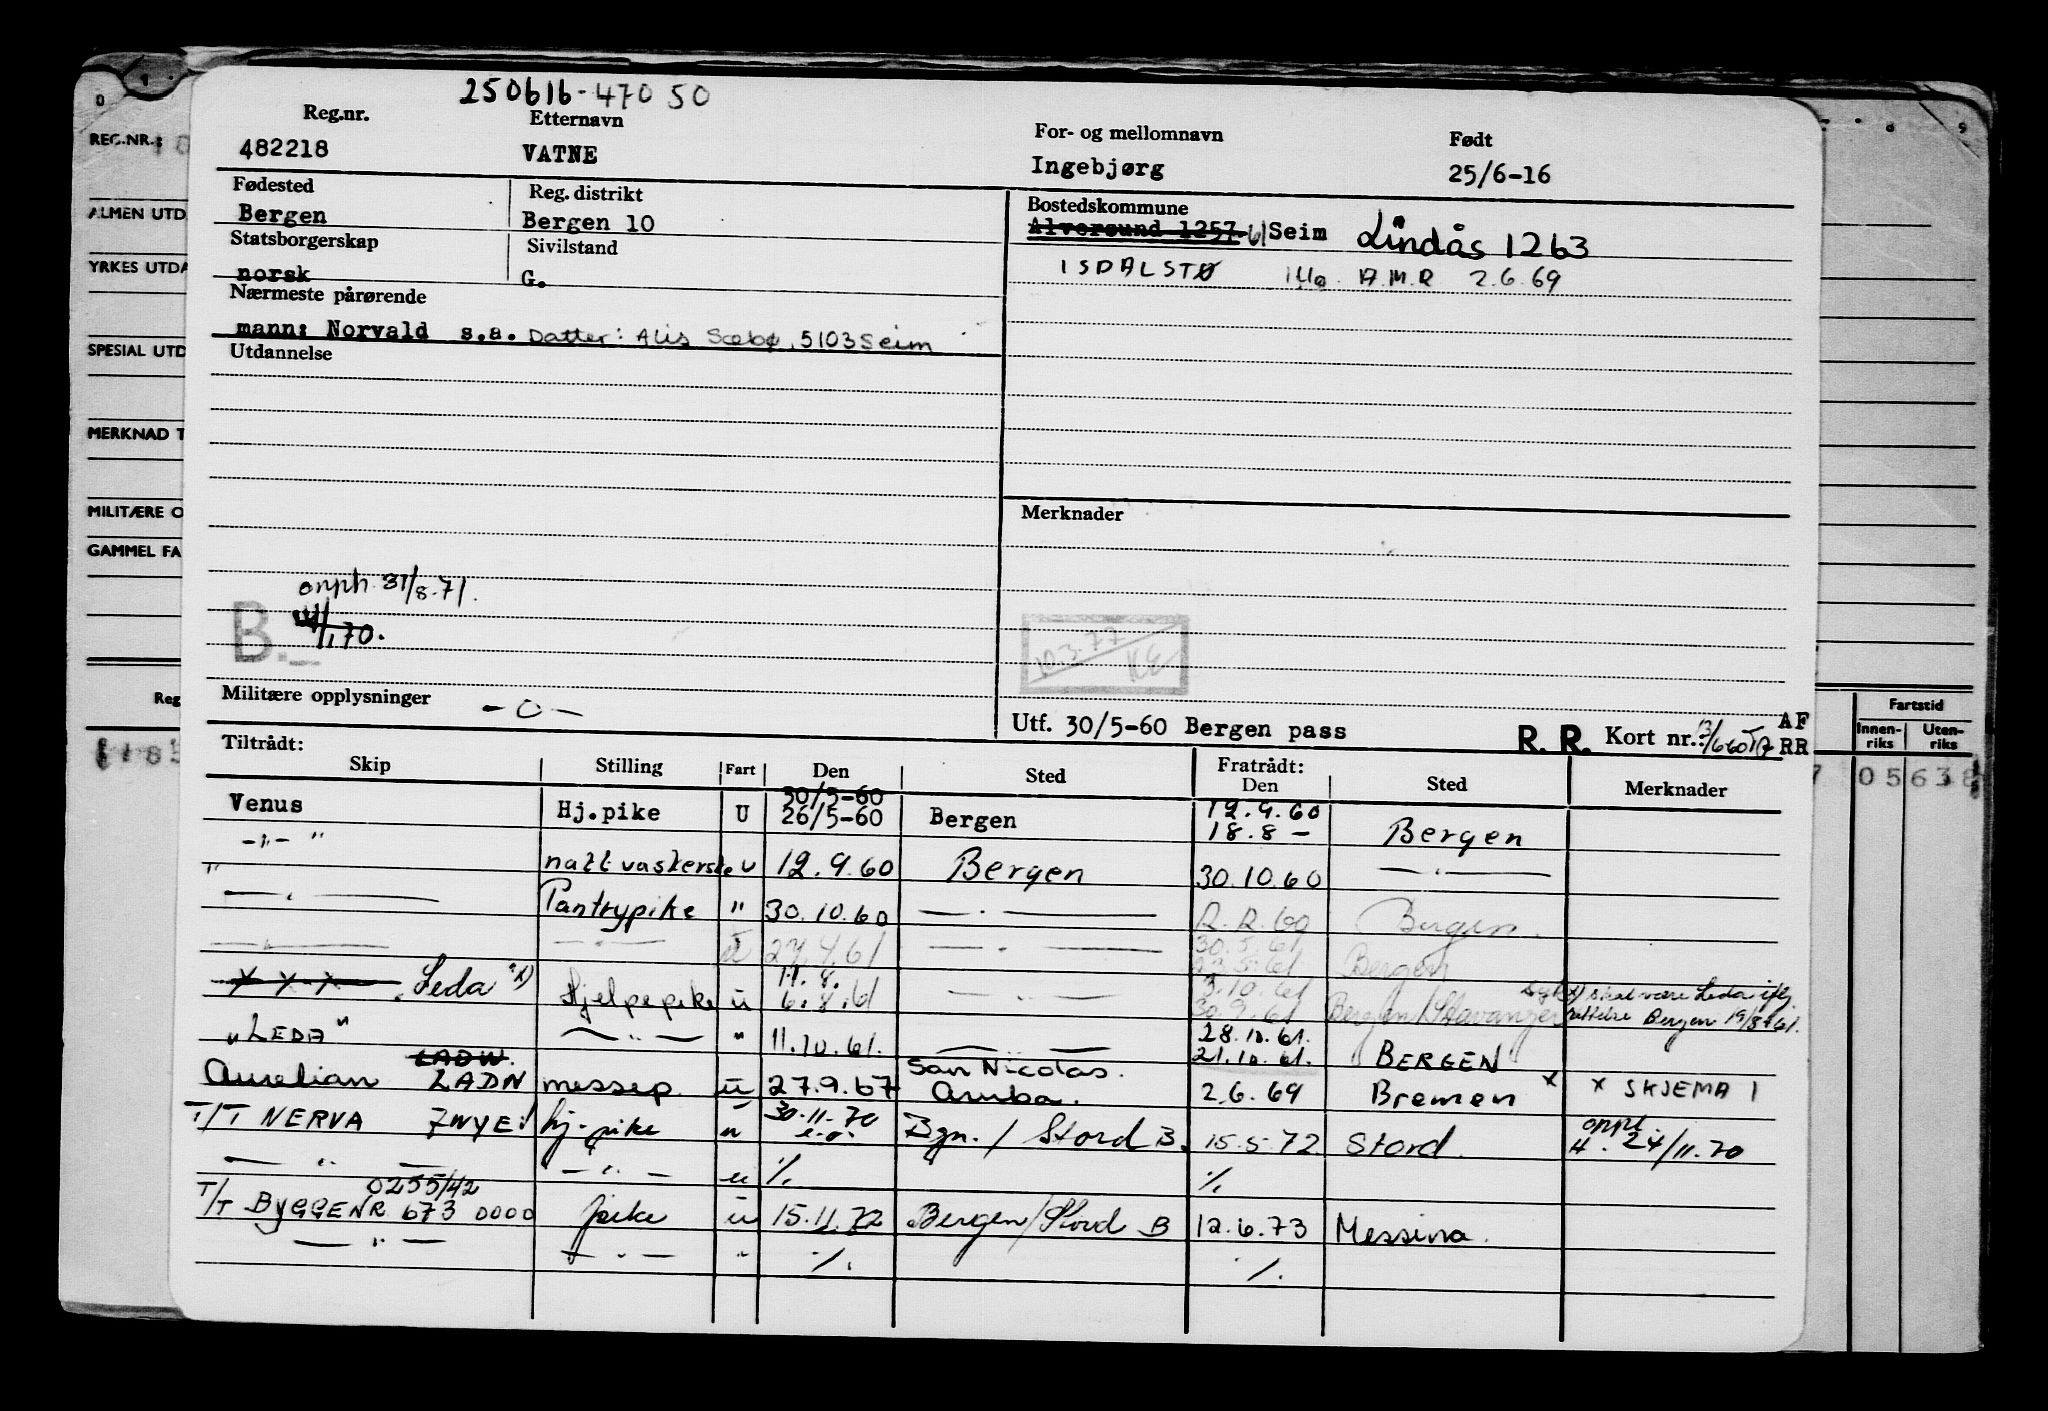 250616-47050
Reg.nr. Etternavn For- og mellomnavn Født
482218 VATNE Ingebjørg 25/6-16
Fødested Reg. distrikt Bostedskommune
Bergen Bergen 10 Alversund 1257 Seim Lindås 1263
Statsborgerskap Sivilstand
norsk G. ISDALSTØ A.M.R 2.6.69
Nærmeste pårørende
mann: Norvald s.a. Datter: Alis Sæbø, 5103 Seim
Utdannelse
Merknader
omph. 31/8-71.
B.
10.3.77 KE
Militære opplysninger -0-
Utf. 30/5-60 Bergen pass R. R. Kort nr.: AF RR
Tiltrådt: Fratrådt:
Skip Stilling Fart Den Sted Den Sted Merknader
30/5-60 12.9.60
Venus Hj.pike U 26/5-60 Bergen 18.8 - Bergen
-"- " nattvaskerske U 12.9.60 Bergen 30.10.60 — " —
— " — Pantrypike " 30.10.60 — " — Bergen.
— " — — " — 27.4.61 — " — 30.5.61 Bergen
11.8. 3.10.61
Leda Hjelpepike u 6.8.61 — " — 30.9.61 Bergen/Stavanger x) skal være Leda iflg. rettelse Bergen 19/8-61.
28.10.61.
"LEDA" — " — " 11.10.61. — " — 21.10.61. BERGEN
LADW. San Nicolas.
Aurelian LADN messep. u 27.9.67 Aruba. 2.6.69 Bremen x x SKJEMA 1
30.11.70
T/T NERVA hj.pike u Bgn./Stord B. 15.5.72 Stord. 24/11.70
— " — — " — u %. %.
0255/42
T/T BYGGENR. 673 0000 pike u 15.11.72 Bergen/Stord B 12.6.73 Messina.
— " — — " — " %. %.
REG.NR.:
ALMEN UTD
YRKES UTDA
SPESIAL UTD
MERKNAD T
MILITÆRE O
GAMMEL FA
Reg
Fartstid
Innen-riks Uten-riks
05638